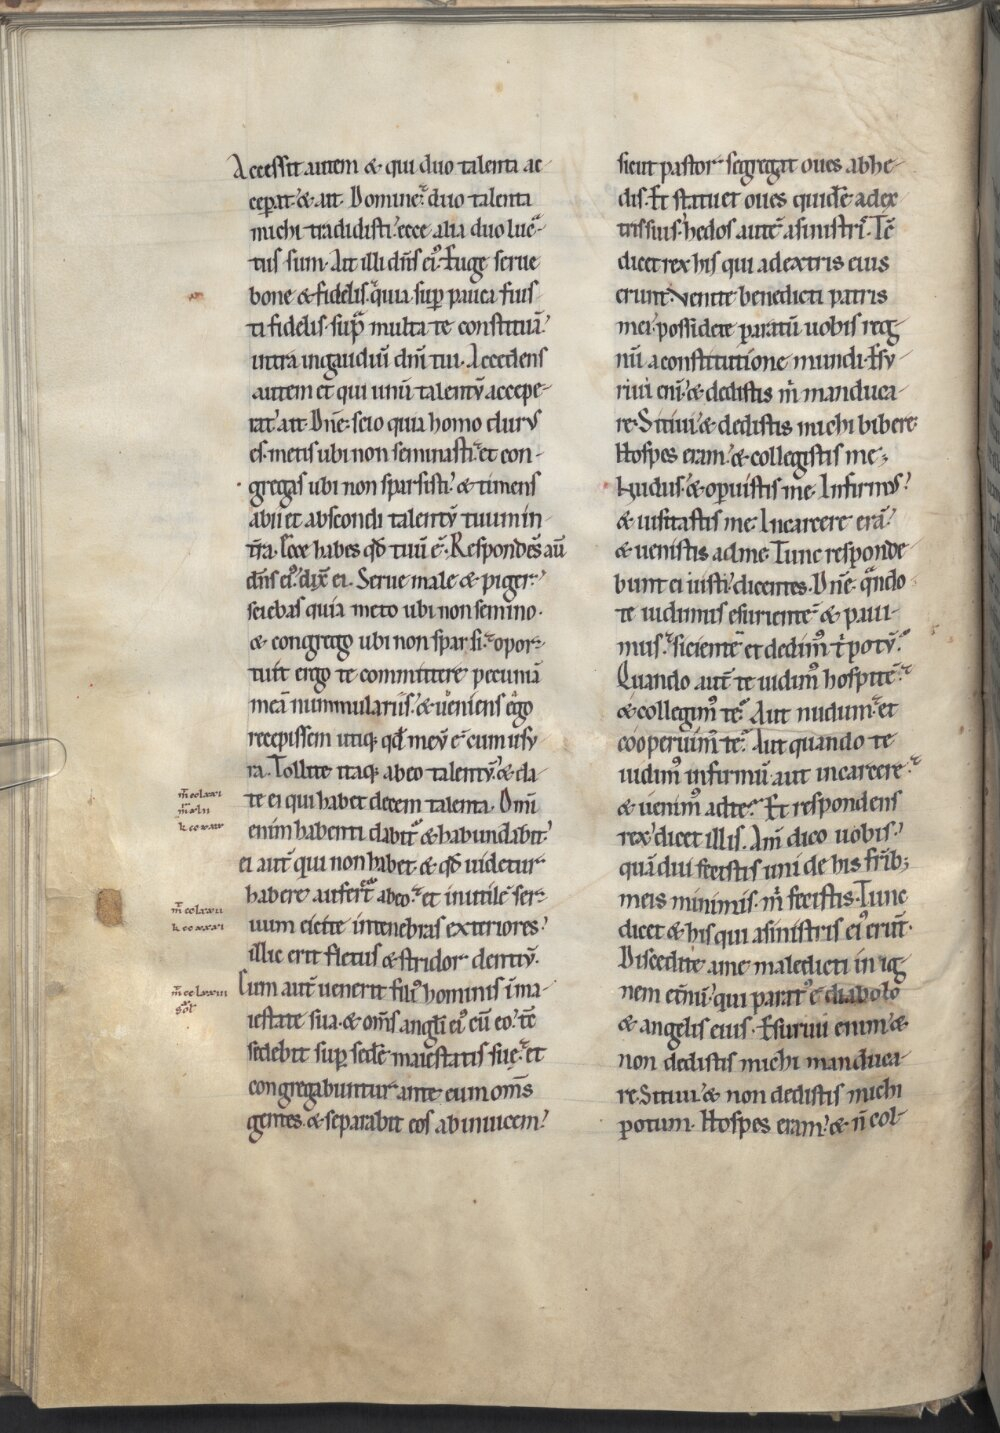 Accessit autem & qui duo talenta ac-
cep̄at & ait. Domine duo talenta
michi tradidisti. ecce alia duo lucͣ-
tus sum. Ait illi dn̄s eiꝰ. Euge serue
bone & fidelis. qͣa sup̱ pauca fuis-
ti fidelis. sup̱ͣ multa te constituā.
intra ingaudiū dnī tui. Accedens
autem et qui unū talentū accepe-
rat ait. Dn̄e scio quia homo durus
es. metis ubi non seminasti. et con-
gregas ubi non sparsisti. & timens
abii et abscondi talentū tuum in
tr̄a. Ecce habes qd̄ tuū ē. Respondēs aū
dn̄s eiꝰ. dix̄ ei. Serue male & piger.
sciebas quia meto ubi non semino.
& congrego ubi non sparsi. opor-
tuit ergo te committere pecuniā
meā nummulariis. & ueniens ego
recepissem utiq; qd̄ meū ē cum usu
ra. Tollite itaq; abeo talentū. & da-
te ei qui habet decem talenta. Omī
enim habenti dabitᷣ & habundabit.
ei aut̄ qui non habet. & qd̄ uidetur
habere aufertᷣ abeo. et inutilē ser-
uum eicite intenebras exteriores.
illic erit fletus & stridor dentiū.
Cum aut̄ uenerit filiꝰ hominis ī ma-
iestate sua. & om̄s angl̄i eiꝰ cū eo. tc̄
sedebit sup̱ sedē maiestatis suę. et
congregabuntur ante eum om̄s
gentes. & separabit eos abinuicem.
m̄ cclxxi
m̄ xl ii
m̄ cclxxii
m̄ cclxxiii
sol̄
sicut pastor segregat oues abhe-
dis. Et statuet oues quidē adex
tris suis. hedos autē asinistris. Tc̄
dicet rex his qui adextris eius
erunt. Venite benedicti patris
mei. possidete paratū uobis reg
nū aconstitutione mundi. Esu-
riui eni. & dedistis m̄ manduca-
re. Sitiui & dedistis michi bibere.
Hospes eram. & collegistis me;
Nudus. & opuistis me. Infirmus.
& uisitastis me. Incarcere erā.
& uenistis ad me. Tunc responde-
bunt ei iusti. dicentes. Dn̄e. qͣndo
te uidimus esurientē & paui-
mus. sicientē et dedimꝰ t̄ potū.
Quando aut̄ te uidimꝰ hospitē.
& collegimꝰ te. Aut nudum. et
cooperuimꝰ te. Aut quando te
uidimꝰ infirmū aut incarcere.
& uenimꝰ adte. Et respondens
rex dicet illis. Am̄ dico uobis.
quādiu fecistis uni de his frib;
meis minimis. m̄ fecistis. Tunc
dicet & his qui asinistris eiꝰ erunt.
Discedite ame maledicti in ig
nem et̄nū. qui paratꝰ ē diabolo
& angelis eius. Esuriui enim &
non dedistis michi manduca-
re. Sitiui. & non dedistis michi
potum. Hospes eram. & n̄ col-